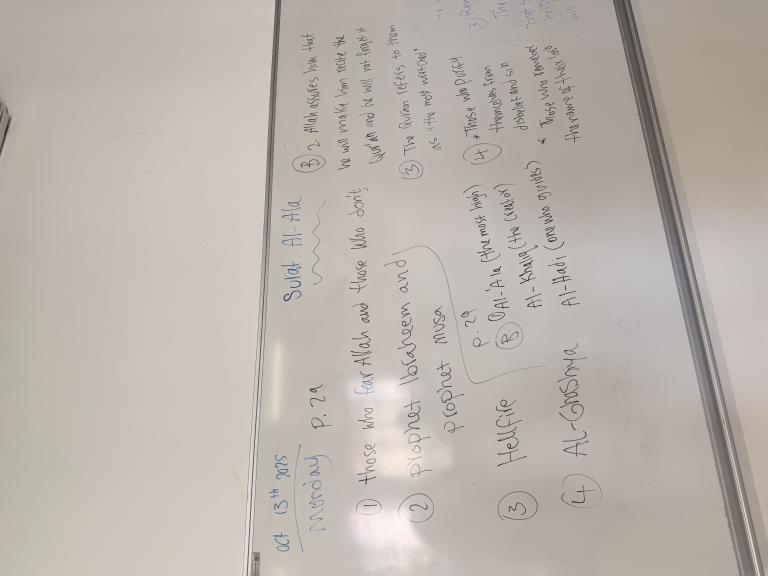 oct 13th 2025
Monday
P. 29
Surat Al-Ala
① those who fear Allah and those who don't.
② prophet Ibraheem and
prophet Musa
③ Hellfire
④ AL-Ghashiya
P. 29
Ⓑ ① Al-'Ala (the most high)
Al-Khaliq (the creator)
Al-Hadi (one who guides)
Ⓑ 2. Allah assures him that
he will make him recite the
Qur'an and he will not forget it.
③ The Quran refers to them
as "the most wretched".
④ * Those who purify
themselves from
disbelief and sin
* Those who remember
the name of their lord
③
The
will